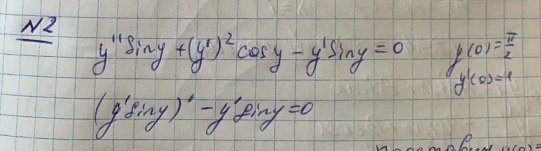 N2
y'' sin y + (y')² cos y - y' sin y = 0 y(0) = π/2
y'(0) = 1
(y' sin y)' - y' sin y = 0